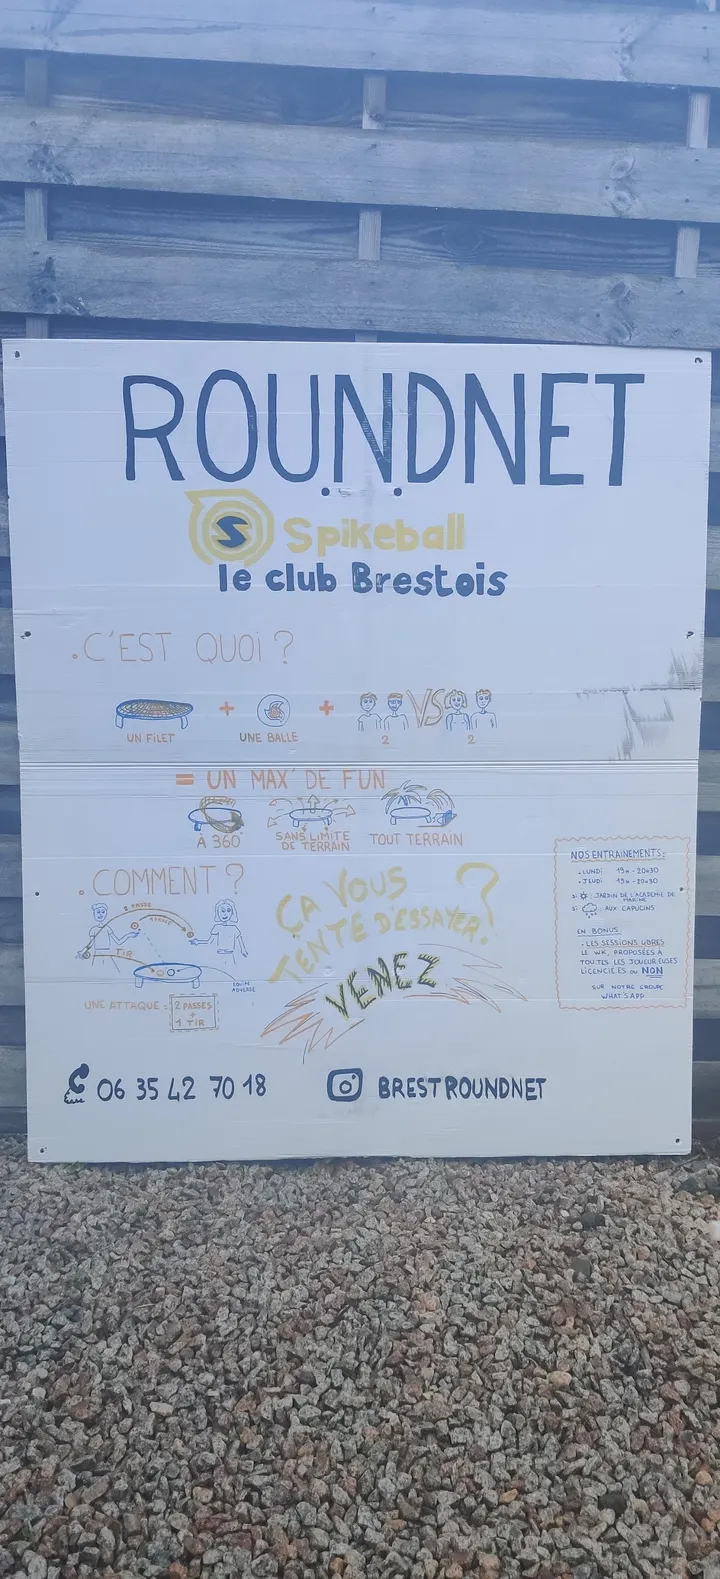 ROUNDNET
Spikeball
le club Brestois
.C'EST QUOI ?
+ + VS
UN FILET UNE BALLE 2 2
= UN MAX' DE FUN
À 360° SANS LIMITE DE TERRAIN TOUT TERRAIN
.COMMENT ?
2 PASSES
1 PASSE
TIR
EQUIPE
ADVERSE
UNE ATTAQUE = 2 PASSES
+
1 TIR
ÇA VOUS
TENTE D'ESSAYER ?
VENEZ
NOS ENTRAINEMENTS:
.LUNDI 19H-20H30
.JEUDI 19H-20H30
SI : JARDIN DE L'ACADEMIE DE
MARINE
SI : AUX CAPUCINS
EN BONUS :
.LES SESSIONS LIBRES
LE WK, PROPOSÉES À
TOU.TES LES JOUEUR.EUSES
LICENCIÉ.ES OU NON
SUR NOTRE GROUPE
WHAT'SAPP
06 35 42 70 18 BRESTROUNDNET